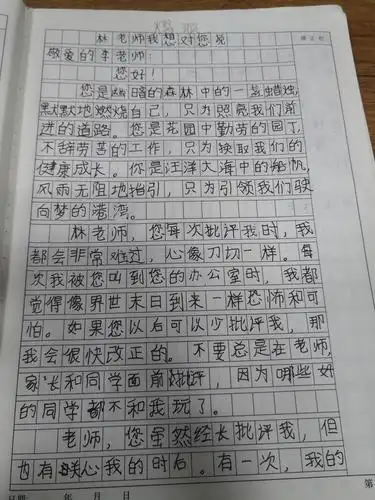 林老师我想对您说
敬爱的李老师:
您好!
您是幽暗的森林中的一盏蜡烛,
默默地燃烧自己,只为照亮我们前
进的道路。您是花园中勤劳的园丁,
不辞劳苦的工作,只为换取我们的
健康成长。你是汪洋大海中的船帆,
风雨无阻地指引,只为引领我们驶
向梦的港湾。
林老师,您每次批评我时,我
都会非常难过,心像刀切一样。每
次我被您叫到您的办公室时,我都
觉得像界世末日到来一样恐怖和可
怕。如果您以后可以少批评我,那
我会很快改正的。不要总是在老师,
家长和同学面前批评,因为哪些好
的同学都不和我玩了。
老师,您虽然经长批评我,但
也有关心我的时后。有一次,我的
日期: 年 月 日
第